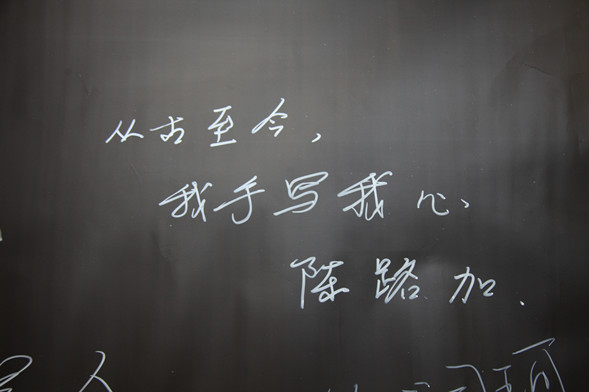 从古至今，
我手写我心、
陈路加.
人